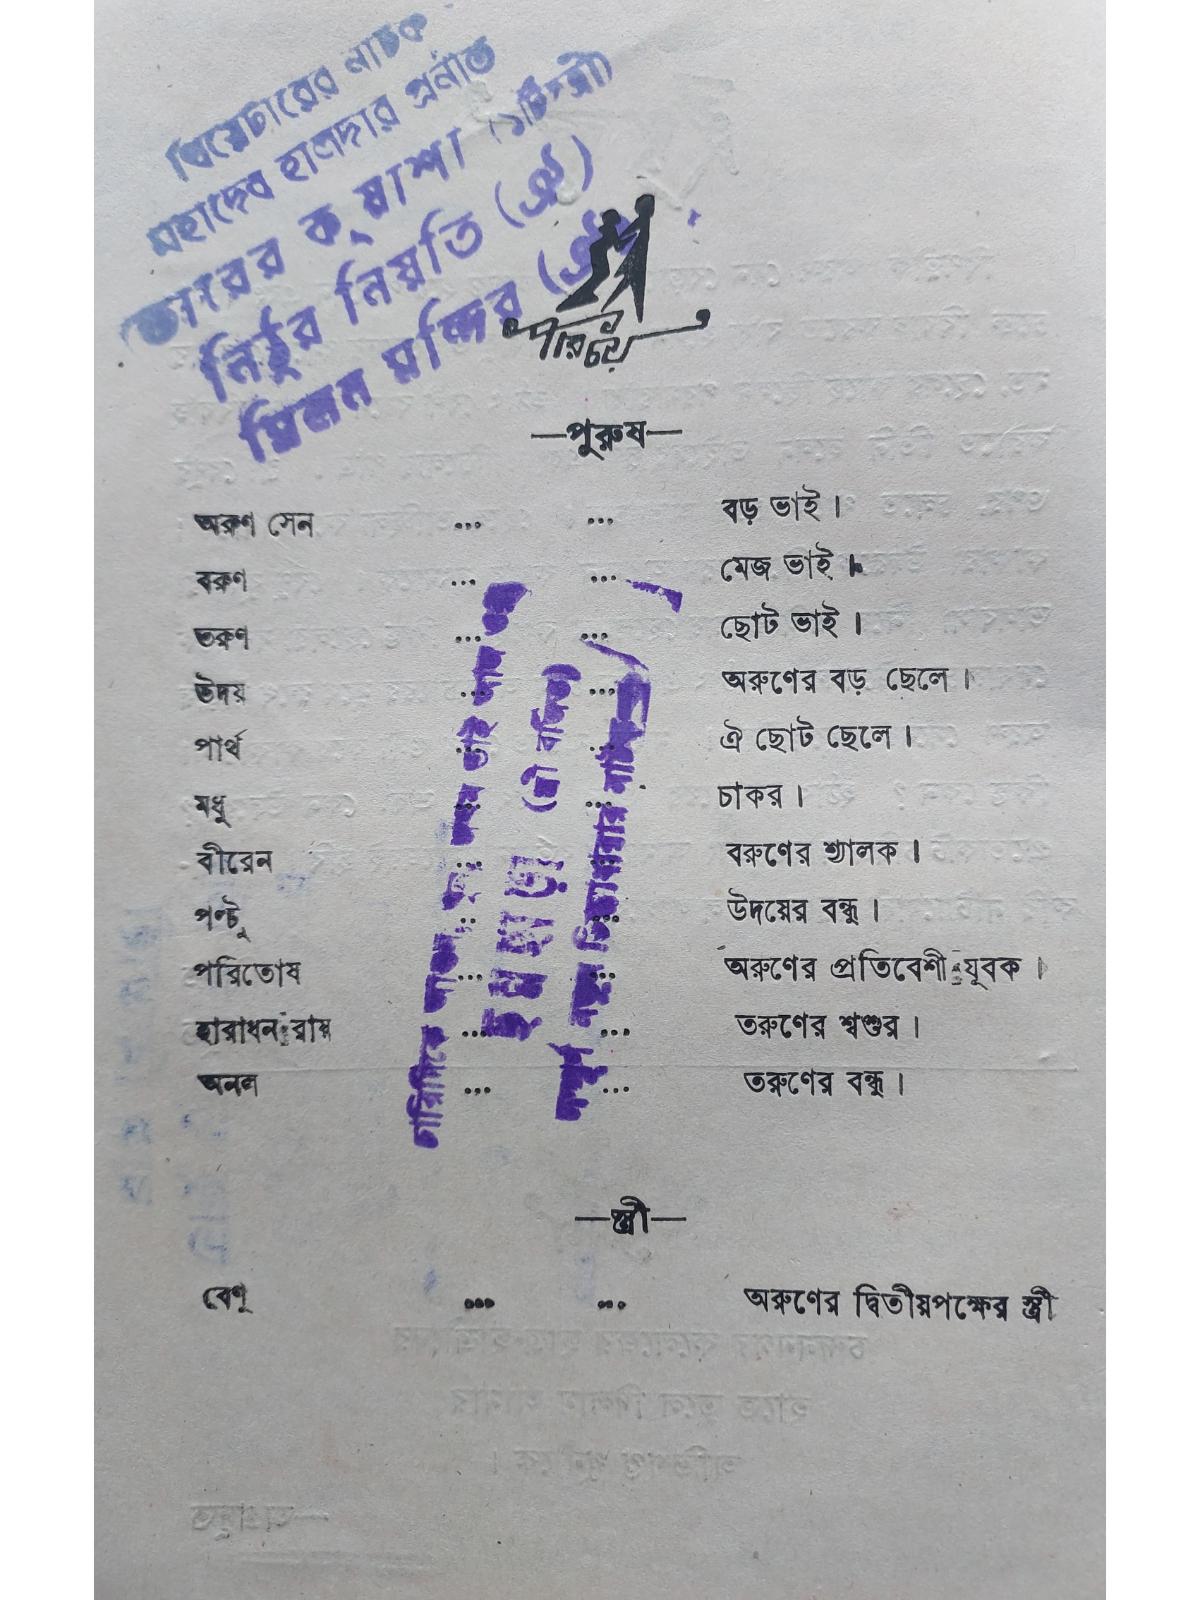 থিয়েটারের নাটক
মহাদেব হালদার প্রনীত
ভোরের কুয়াশা (১টি স্ত্রী)
নিঠুর নিয়তি (ঐ)
মিলন মন্দির (ঐ)
পরিচয়
—পুরুষ—
অরুণ সেন ... ... বড় ভাই।
বরুণ ... ... মেজ ভাই।
তরুণ ... ... ছোট ভাই।
উদয় ... ... অরুণের বড় ছেলে।
পার্থ ... ... ঐ ছোট ছেলে।
মধু ... ... চাকর।
বীরেন ... ... বরুণের শ্যালক।
পল্টু ... ... উদয়ের বন্ধু।
পরিতোষ ... ... অরুণের প্রতিবেশী যুবক।
হারাধন রায় ... ... তরুণের শ্বশুর।
অনল ... ... তরুণের বন্ধু।
চারিদিকে
(স্ত্রী বর্জিত)
সম্পূর্ণ নতুন চিন্তাধারার
—স্ত্রী—
বেণু ... ... অরুণের দ্বিতীয়পক্ষের স্ত্রী